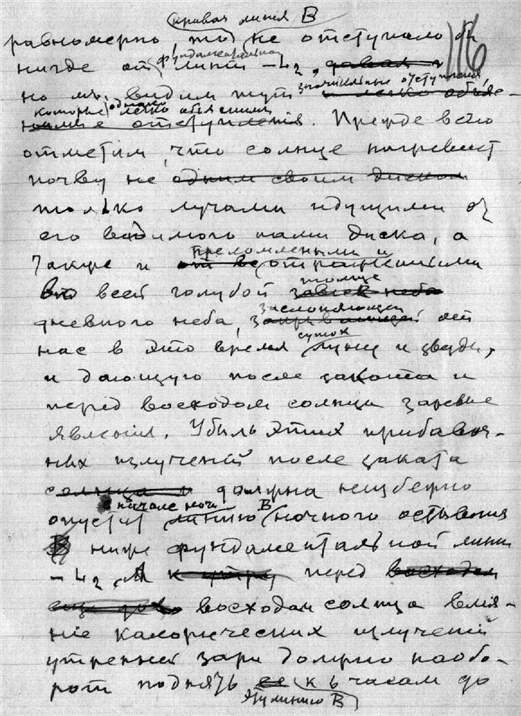 кривая линия В
равномерно то не отступало бы
нигде от фундаментальной линии –42,
116
но мы видим тут значительные отступления
которые однако легко объяснимы
отступления. Прежде всего
отметим, что солнце нагревает
почву не одним своим диском
только лучами идущими от
его видимого нами диска, а
также и преломленными и отраженными
во всей голубой толще
дневного неба, заслоняющей от
нас в это время суток луну и звезды,
и дающую после заката и
перед восходом солнца заревые
явления. Убыль этих прибавоч-
ных излучений после заката
солнца и должна неизбежно
в начале ночи
опустит линию В ночного остывания
ниже фундаментальной линии
–42, а перед восходом
восходом солнца влия-
ние калорических излучений
утренней зари должно наобо-
рот поднять к ч часам до
эту линию В